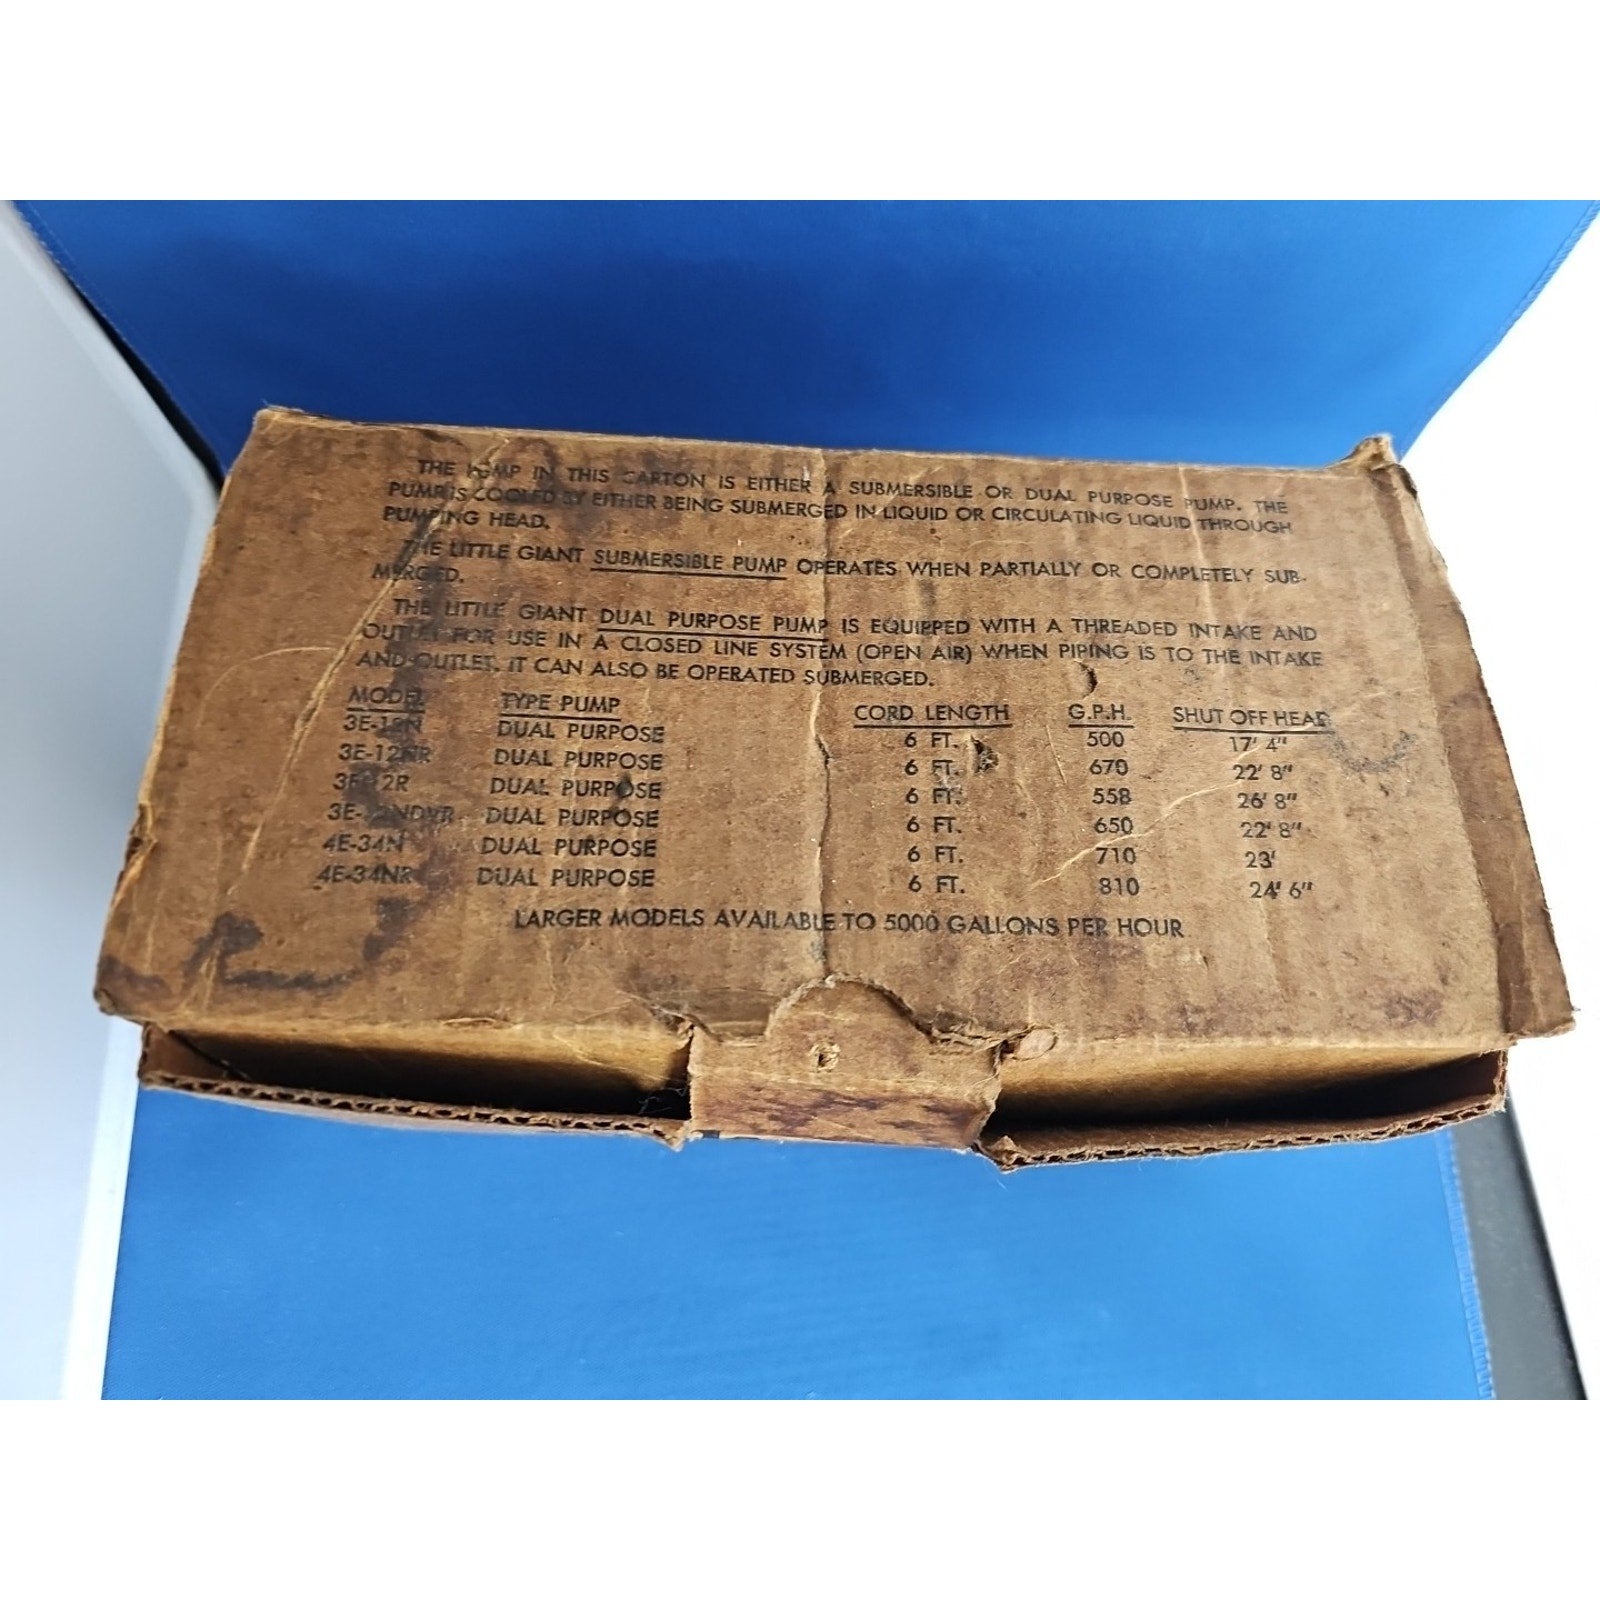 THE PUMP IN THIS CARTON IS EITHER A SUBMERSIBLE OR DUAL PURPOSE PUMP. THE
PUMP IS COOLED BY EITHER BEING SUBMERGED IN LIQUID OR CIRCULATING LIQUID THROUGH
PUMPING HEAD.
THE LITTLE GIANT SUBMERSIBLE PUMP OPERATES WHEN PARTIALLY OR COMPLETELY SUB-
MERGED.
THE LITTLE GIANT DUAL PURPOSE PUMP IS EQUIPPED WITH A THREADED INTAKE AND
OUTLET FOR USE IN A CLOSED LINE SYSTEM (OPEN AIR) WHEN PIPING IS TO THE INTAKE
AND OUTLET. IT CAN ALSO BE OPERATED SUBMERGED.
MODEL TYPE PUMP CORD LENGTH G.P.H. SHUT OFF HEAD
3E-12N DUAL PURPOSE 6 FT. 500 17' 4"
3E-12NR DUAL PURPOSE 6 FT. 670 22' 8"
3E-12R DUAL PURPOSE 6 FT. 558 26' 8"
3E-12NDVR DUAL PURPOSE 6 FT. 650 22' 8"
4E-34N DUAL PURPOSE 6 FT. 710 23'
4E-34NR DUAL PURPOSE 6 FT. 810 24' 6"
LARGER MODELS AVAILABLE TO 5000 GALLONS PER HOUR